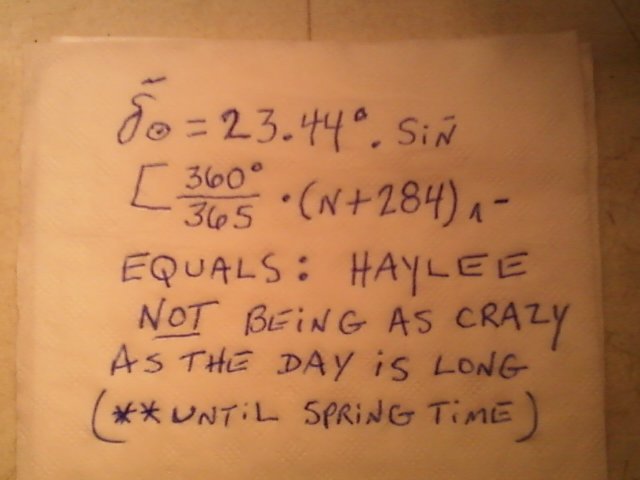 δ̃⊙ = 23.44°. SiN
[360°/365 · (N+284)
EQUALS: HAYLEE
NOT BEING AS CRAZY
AS THE DAY iS LONG
(**UNTiL SPRiNG TiME)